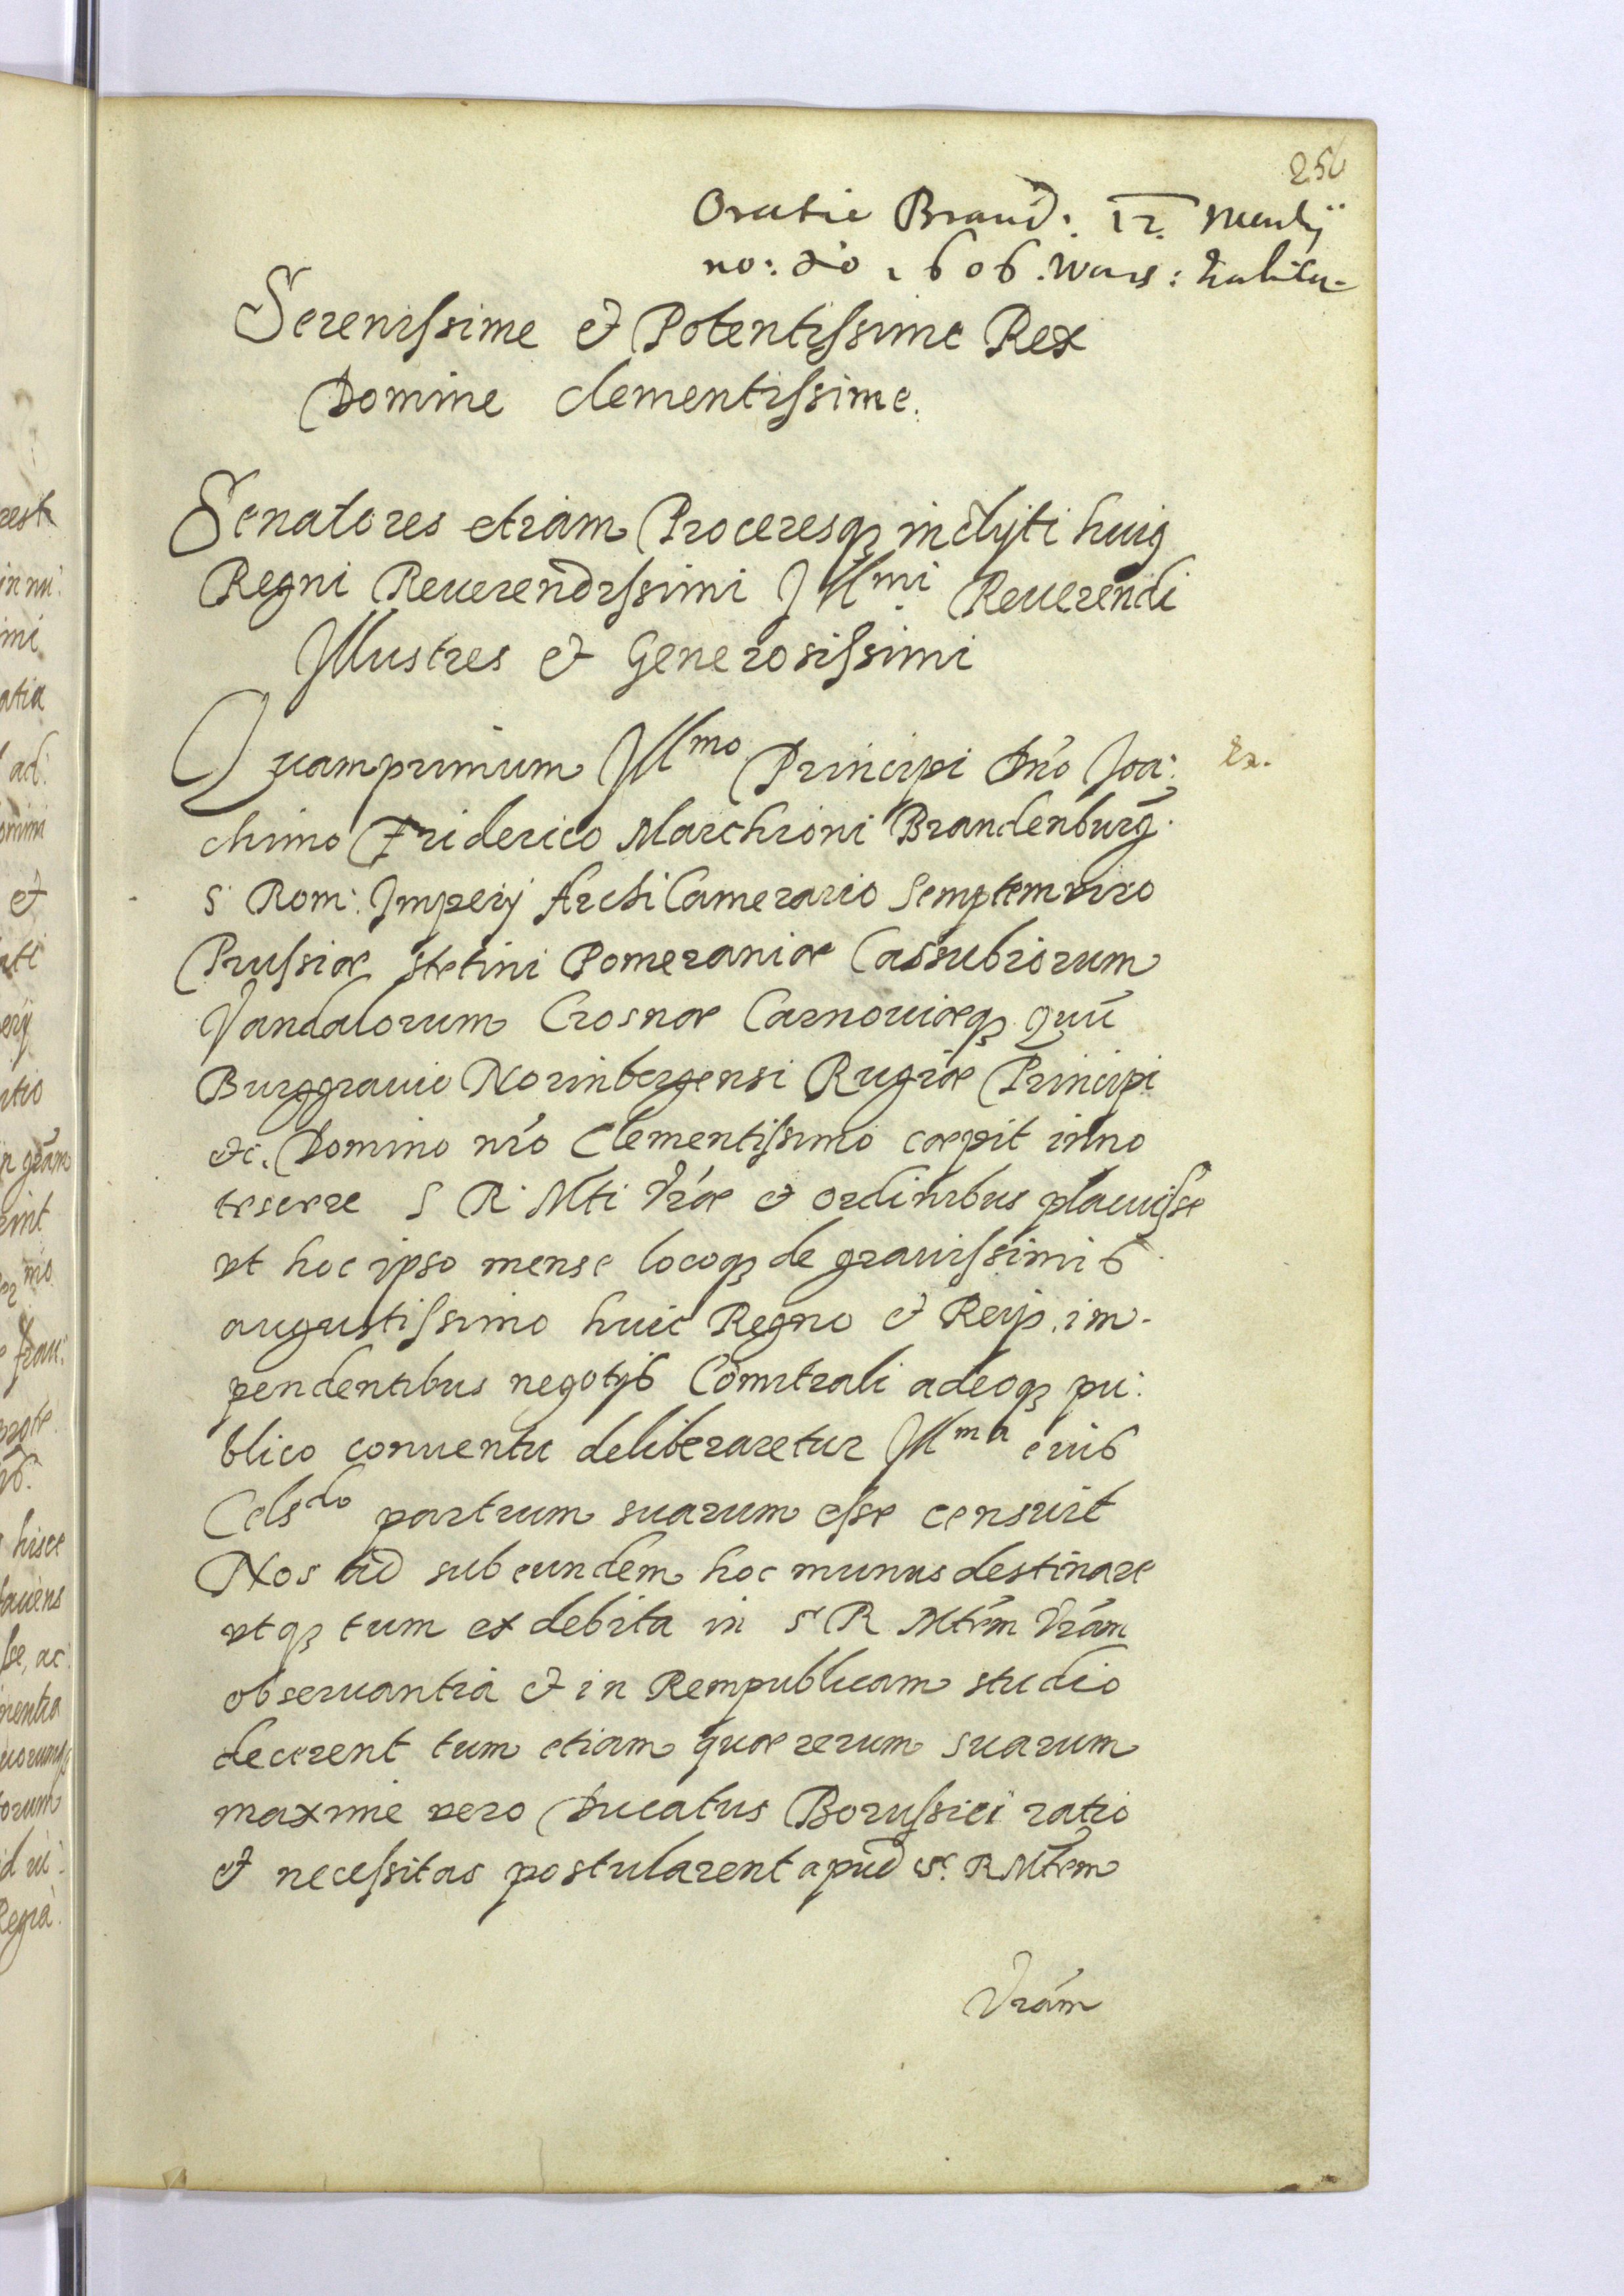 Oratio Brand: 12 Martij
no: do 1606. Wars: habita
Serenissime et Potentissime Rex
Domine clementissime.
Senatores etiam Proceresq inclyti huig
Regni Reuerendissimi Illmi Reuerendi
Illustres et Generosissimi
Quamprimum Illmo Principi Dno Joa:
chimo Friderico Marchioni Brandenburg.
S Rom: Imperij Archi Camerario Semptemviro
Prussiæ Stetini Pomeraniæ Cassubiorum
Vandalorum Crosnæ Carnouiæq
Burggrauio Norinbergensi Rugiæ Principi
etc. Domino nro Clementissimo cœpit inno
tescere S R Mti Vræ et ordinibus placuisse
vt hoc ipso mense locoq de grauissimis
augustissimo huic Regno et Reip. im-
pendentibus negotijs Comitiali adeoq pu:
blico conuentu deliberaretur Illma eius
Celsdo partium suarum esse censuit
Nos ad subeundem hoc munus destinare
vtq tum ex debita in S R Mtem Vram
obseruantia et in Rempublicam studio
decerent tum etiam quæ rerum suarum
maxime vero Ducatus Borussici ratio
et necessitas postularent apud S. R Mtem
Vram